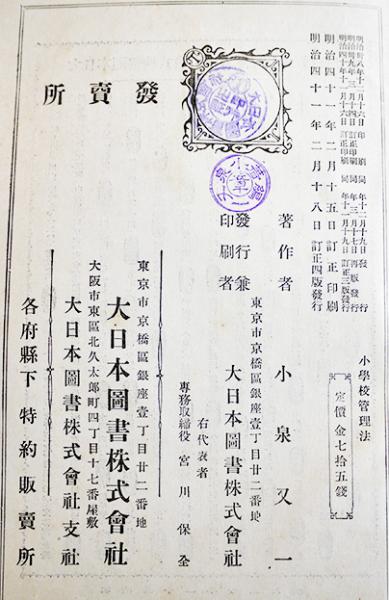 小學校管理法
定價金七拾五錢
明治四十一年二月十五日訂正印刷
明治四十一年二月十八日訂正四版發行
著作者 小泉又一
發行兼印刷者
東京市京橋區銀座壹丁目廿二番地
大日本圖書株式會社
右代表者
專務取締役 宮川保全
發賣所
東京市京橋區銀座壹丁目廿二番地
大日本圖書株式會社
大阪市東區北久太郎町四丁目十七番屋敷
大日本圖書株式會社支社
各府縣下特約販賣所